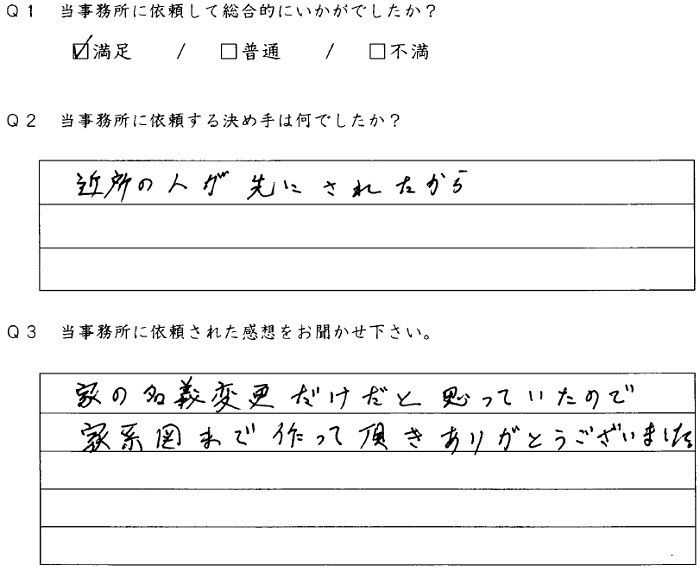 Q1 当事務所に依頼して総合的にいかがでしたか?
☑満足 / □普通 / □不満
Q2 当事務所に依頼する決め手は何でしたか?
近所の人が先にされたから
Q3 当事務所に依頼された感想をお聞かせ下さい。
家の名義変更だけだと思っていたので
家系図まで作って頂きありがとうございました